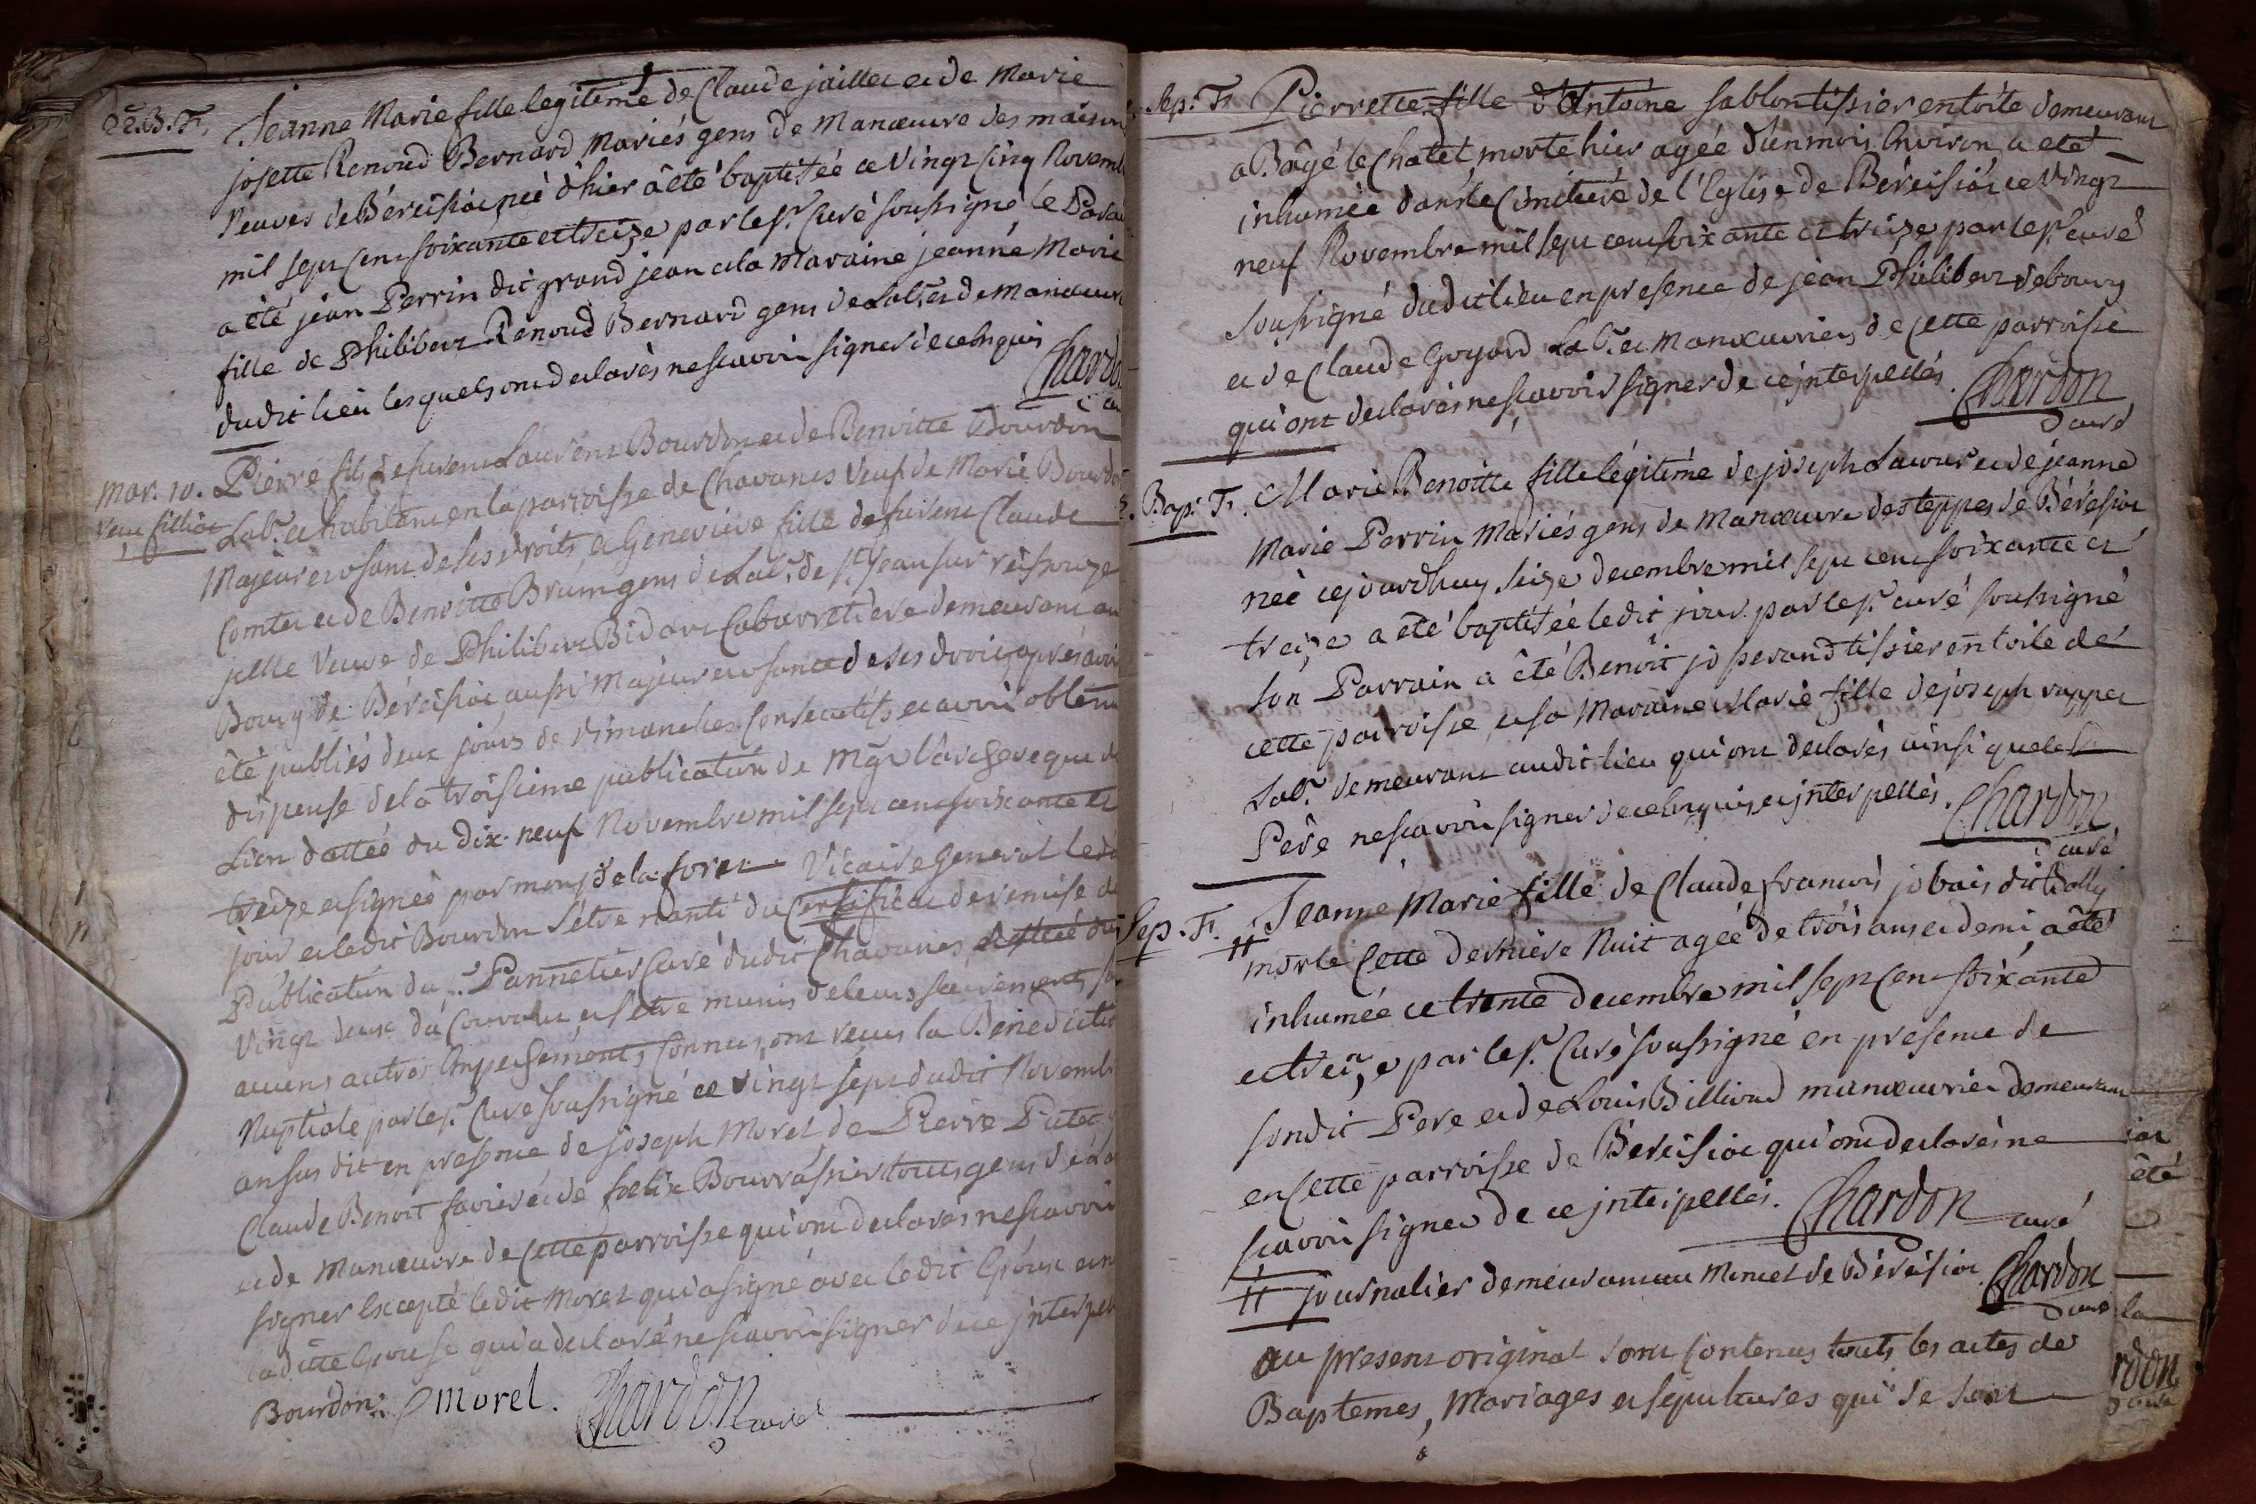 22. B. F.
Jeanne Marie fille legitime de Claude jaillet et de Marie
josette Renoud Bernard Mariés gens de Manœuvre des maisons
Neuves de Béreisiat née d'hier â eté baptisée ce vingt cinq Novemb
mil sept cent soixante et treize par le sr. Curé soussigné le Para
a été jean Perrin dit grand jean et la Maraine jeanne Marie
fille de Philibert Renoud Bernard gens de Labr. et de Manœuvre
dudit lieu lesquels ont declarés ne scavoir signer de ce Enquis
Chardon
Mar. 10.
veuf fillia
Pierre fils de furent Laurent Bourdon et de Benoitte Bourdon
Labr. et habitant en la parroisse de Chavanes veuf de Marie Bourdo
Majeur et usant de ses droits et Genevieve fille de furent Claude
Comte et de Benoitte Brun gens de Labr. de St Jean sur reissouze
jcelle veuve de Philibert Bidart Cabarretiere demeurant au
Bourg de Béreisiat aussi Majeure et usante de ses droits, après avoir
été publiés deux jours de dimanches consecutifs et avoir obtenu
dispense de la troisieme publication de Mgr l'archeveque de
Lion dattée du dix-neuf Novembre mil sept cent soixante et
treize et signée par monsr de la foret Vicaire General ledit
jour et ledit Bourdon s'etre nanti du Certificat de remise de
Publication du sr. Pannetier Curé dudit Chavanes datteé du
vingt deux du Courant et s'etre munis de leurs sacrements sans
aucuns autres Empechements Connus, ont recus la Benediction
Nuptiale par le sr. Curé soussigné ce vingt sept dudit Novembr
an susdit en presence de joseph Morel de Pierre Putet
Claude Benoit favier et de felix Bourrassier tous gens de La
et de Manœuvre de Cette parroisse qui ont declarés ne scavoir
signer Excepté ledit Morel qui a signé avec ledit Epoux et n
ladite Epouse qui a declaré ne scavoir signer de ce jnterpel
Bourdon Morel. Chardon curé
Sep. F.
Pierrette fille d'Antoine sablon tissier en toile demeurant
a Bâgé le Chatel morte hier agée d'un mois Environ a eté
inhumée dans le Cimitiere de l'Eglise de Béreisiat ce vingt
neuf Novembre mil sept cent soixante et treize par le sr. curé
soussigné dudit lieu en presence de jean Philibert debourg
et de Claude Goyard Labr. et Manœuvriers de cette parroisse
qui ont declarés ne scavoir signer de ce jnterpellés. Chardon
curé
Bap. F.
Marie Benoitte fille légitime de joseph Lacour et de jeanne
Marie Perrin Mariés gens de Manœuvre des teppes de Béréisiat
née cejourdhuy seize decembre mil sept cent soixante et
treize a été baptisée ledit jour par le sr. curé soussigné
son Parrain a été Benoit josserand tissier en toile de
cette parroisse et sa Maraine Marie fille de joseph rappet
Labr. demeurant audit lieu qui ont declarés ainsi que le
Pere ne scavoir signer de ce Enquis et jnterpellés. Chardon
curé
Sep. F.
Jeanne Marie fille de Claude francois jobais dit Bolly
# morte Cette derniere Nuit agée de trois ans et demi a été
inhumée ce trente decembre mil sept cent soixante
et treize par le sr. Curé soussigné en presence de
sondit Pere et de Louis Billioud manœuvrier demeurant
en Cette parroisse de Béreisiat qui ont declarés ne
scavoir signer de ce jnterpellés. Chardon curé
# journalier demeurant au Moncel de Béréisiat Chardon
curé
au present original sont Contenus touts les actes de
Baptemes, Mariages et sepultures qui se sont